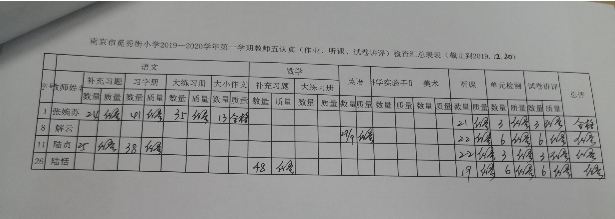 南京市莫愁新寓小学2019—2020学年第一学期教师五认真（作业、听课、试卷讲评）检查汇总表（截止到2019.12.30）
序 教师姓名 语文 数学 英语 科学实验手册 美术 听课 单元检测 试卷讲评 总评
补充习题 习字册 大练习册 大小作文 补充习题 大练习册
数量 质量 数量 质量 数量 质量 数量 质量 数量 质量 数量 质量 数量 质量 数量 质量 数量 质量 数量 质量 数量 质量 数量 质量
1 优秀 优秀 35 优秀 13 合格 21 优秀 3 优秀 3 优秀 合格
8 解云 优秀 22 优秀 6 优秀 6 优秀 优秀
11 陆贞 25 优秀 38 优秀 22 优秀 3 优秀 3 优秀 优秀
28 陆恬 48 优秀 19 优秀 6 优秀 6 优秀 优秀